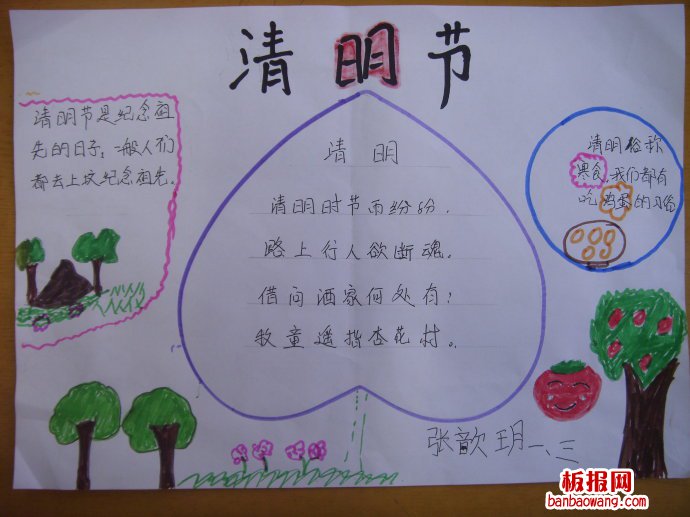 清明节
清明节是纪念祖
先的日子，一般人们
都去上坟纪念祖先。
清明
清明时节雨纷纷．
路上行人欲断魂。
借问酒家何处有？
牧童遥指杏花村。
清明俗称
寒食，我们都有
吃鸡蛋的习俗
张歆玥一、三
板报网
banbaowang.com